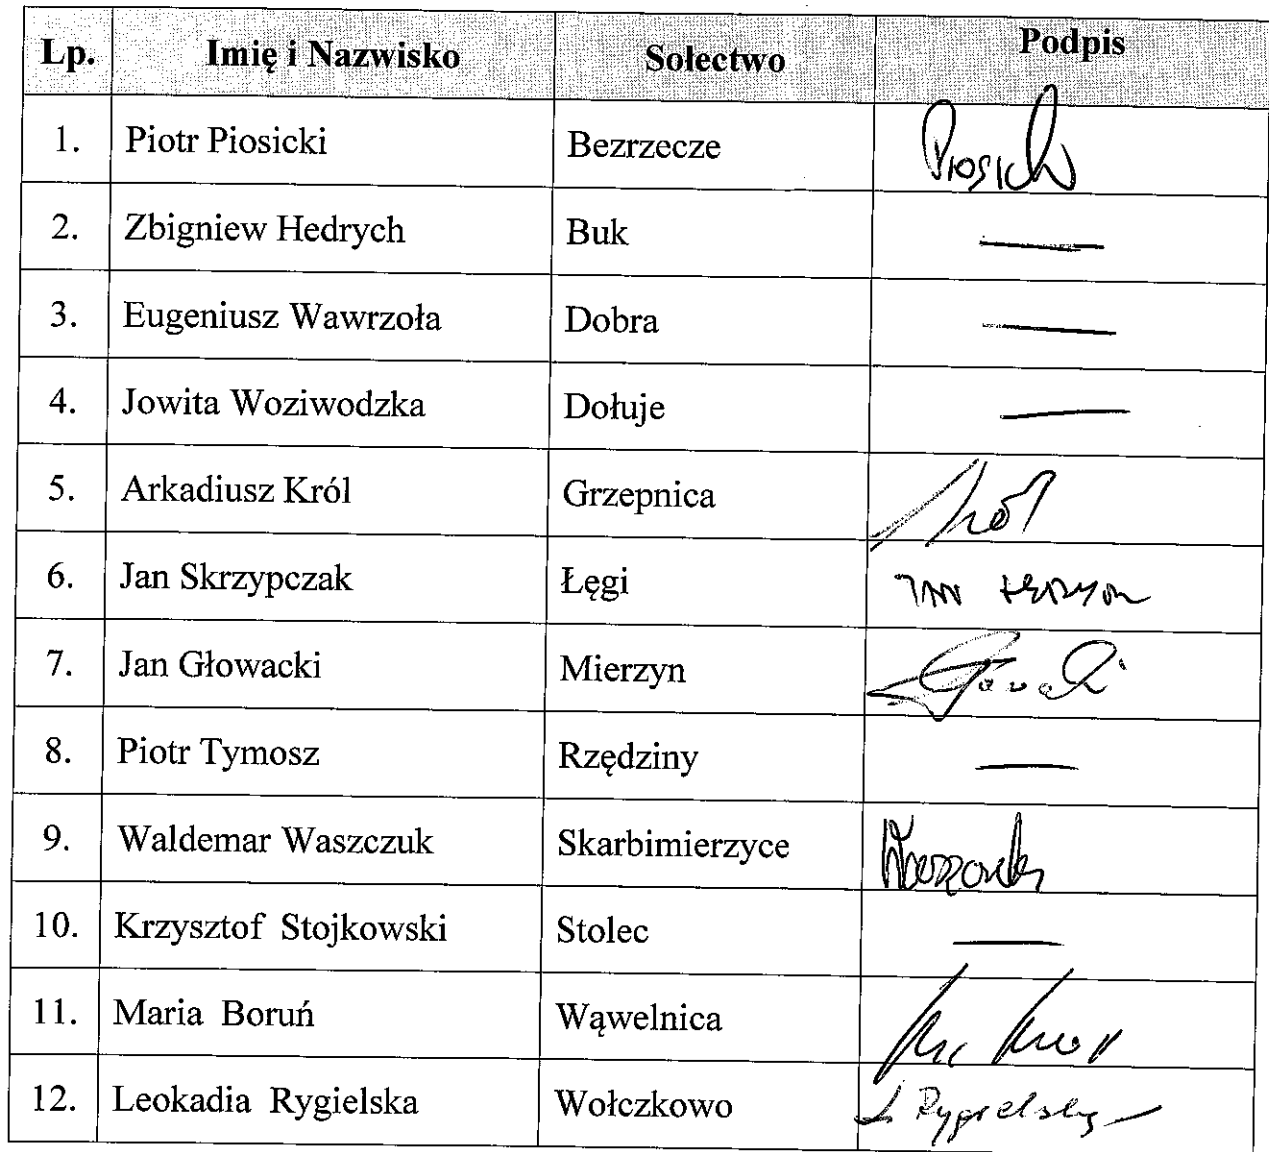 Lp. Imię i Nazwisko Sołectwo Podpis
1. Piotr Piosicki Bezrzecze Piosicki
2. Zbigniew Hedrych Buk —
3. Eugeniusz Wawrzoła Dobra —
4. Jowita Woziwodzka Dołuje —
5. Arkadiusz Król Grzepnica Król
6. Jan Skrzypczak Łęgi
7. Jan Głowacki Mierzyn
8. Piotr Tymosz Rzędziny —
9. Waldemar Waszczuk Skarbimierzyce
10. Krzysztof Stojkowski Stolec —
11. Maria Boruń Wąwelnica
12. Leokadia Rygielska Wołczkowo L Rygielska